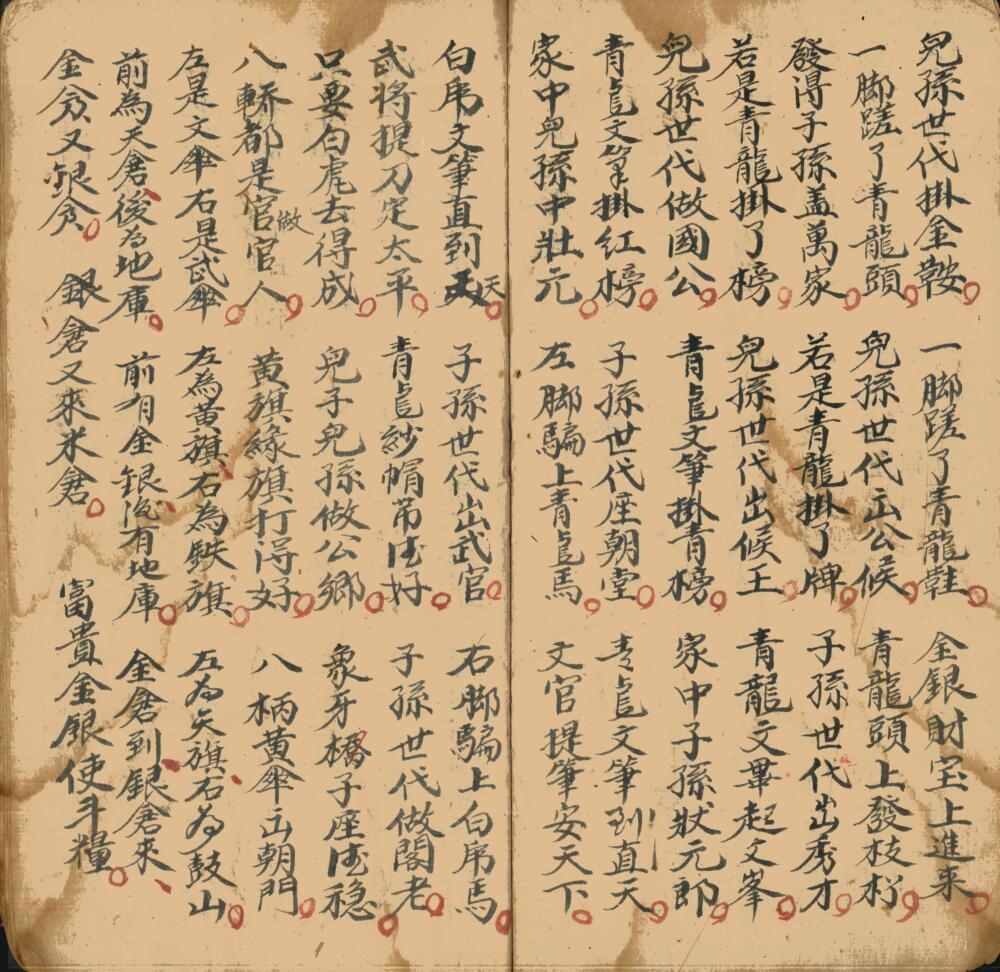 兒孫世代掛金鞍 一脚蹉了青龍鞋 金銀財宝上進來
一脚蹉了青龍頭 兒孫世代出公候 青龍頭上發枝杇
發得子孫盖萬家 若是青龍掛了牌 子孫世代出秀才
若是青龍掛了榜 兒孫世代出候王 青龍文畢起文峯
兒孫世代做國公 青龍文筆掛青榜 家中子孫狀元郎
青龍文筆掛紅榜 子孫世代座朝堂 青龍文筆到直天
家中兒孫中壯元 左脚騙上青龍馬 文官提筆安天下
白虎文筆直到天 子孫世代出武官 右脚騙上白虎馬
武將提刀定太平 青龍紗帽帶得好 子孫世代做閣老
只要白虎去得成 兒子兒孫做公鄉 象牙橋子座得穏
八轎都是官做官人 黄旗緣旗打得好 八柄黄傘出朝門
左是文傘右是武傘 左為黄旗右為鉄旗 左為矢旗右為鼓山
前為天倉後為地庫 前有金銀後有地庫 金倉到銀倉來
金貪又銀貪 銀倉又來米倉 富貴金銀使斗糧